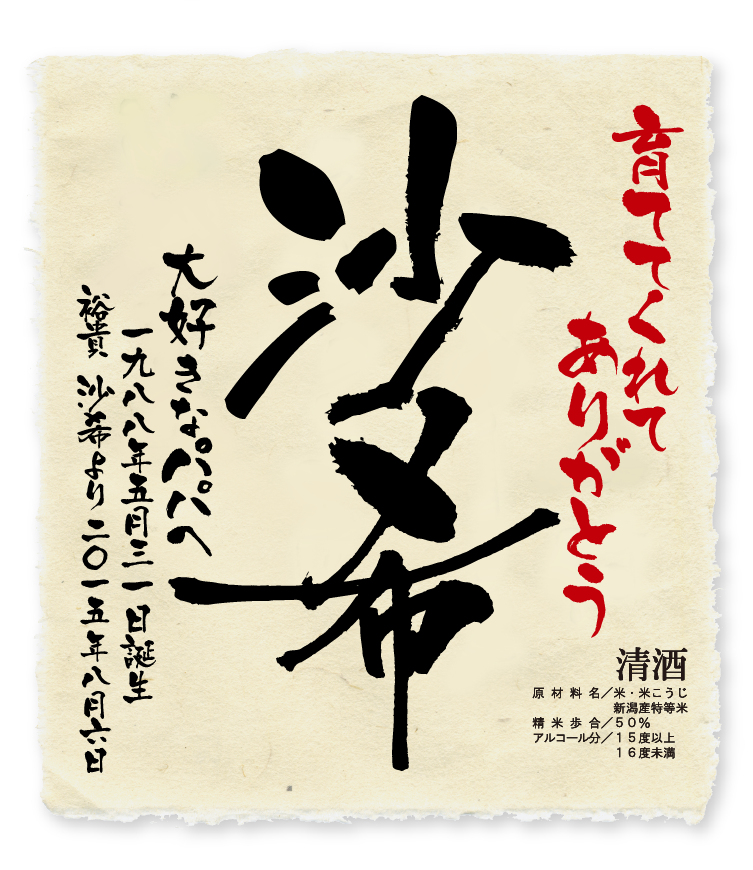 育ててくれて
ありがとう
沙希
大好きなパパへ
一九八八年五月三一日誕生
裕貴 沙希より 二〇一五年八月六日
清酒
原材料名／米・米こうじ
新潟産特等米
精米歩合／５０％
アルコール分／１５度以上
１６度未満